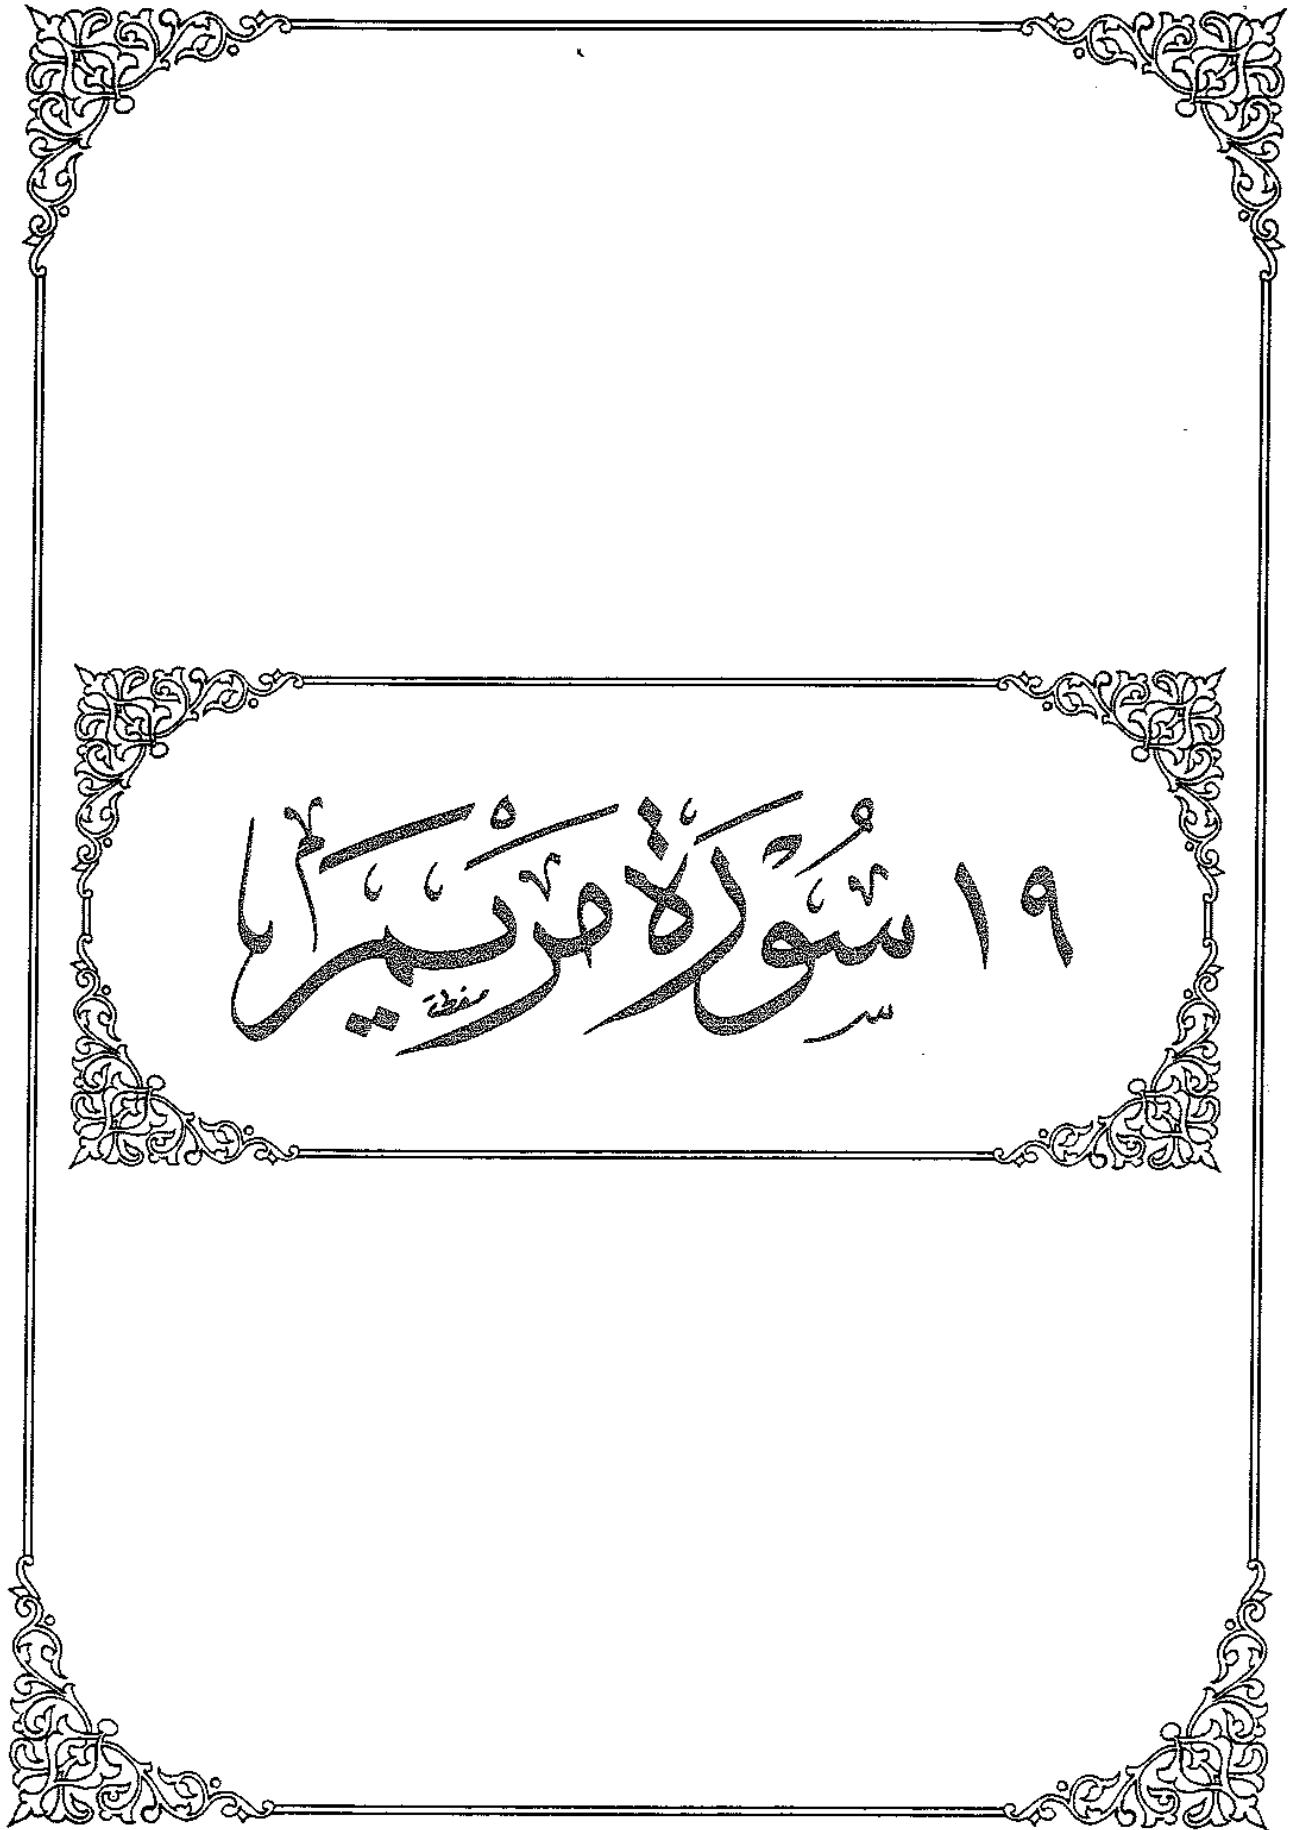 ١٩ سُوْرَةُ مَرْيَم